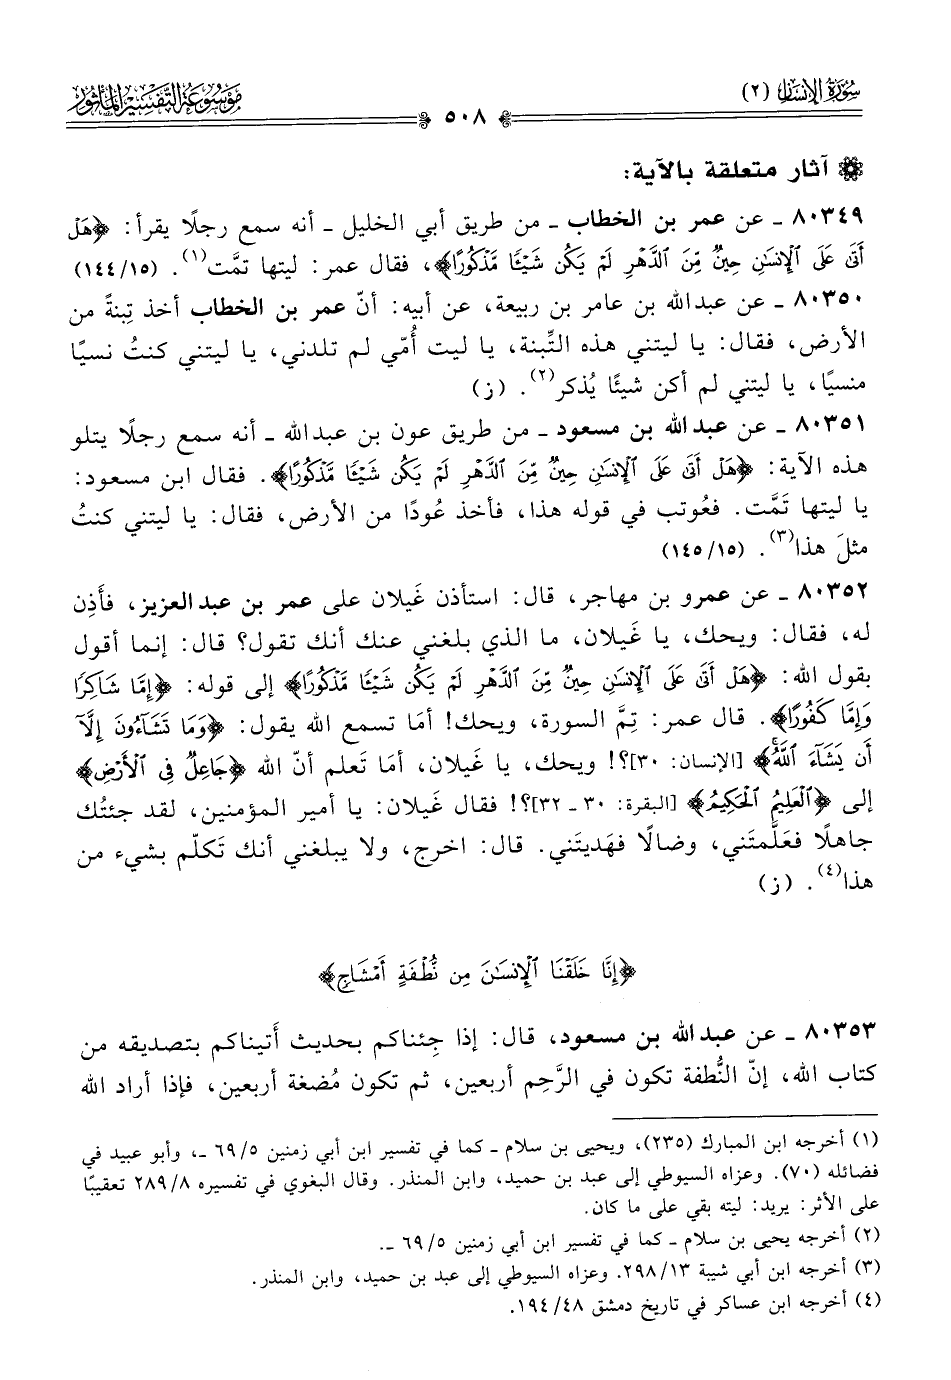 سُورَةُ الإِنسَان (٢)
مَوْسُوعَةُ التَّفْسِيرِ المَأْثُور
٥٠٨
آثار متعلقة بالآية:
٨٠٣٤٩ ـ عن عمر بن الخطاب ـ من طريق أبي الخليل ـ أنه سمع رجلًا يقرأ: ﴿هَلْ
أَتَىٰ عَلَى ٱلْإِنسَٰنِ حِينٌ مِّنَ ٱلدَّهْرِ لَمْ يَكُن شَيْـًٔا مَّذْكُورًا﴾، فقال عمر: ليتها تمَّت(١). (١٤٤/١٥)
٨٠٣٥٠ ـ عن عبدالله بن عامر بن ربيعة، عن أبيه: أنّ عمر بن الخطاب أخذ تِبنةً من
الأرض، فقال: يا ليتني هذه التِّبنة، يا ليت أُمّي لم تلدني، يا ليتني كنتُ نسيًا
منسيًا، يا ليتني لم أكن شيئًا يُذكر(٢). (ز)
٨٠٣٥١ ـ عن عبدالله بن مسعود ـ من طريق عون بن عبدالله ـ أنه سمع رجلًا يتلو
هذه الآية: ﴿هَلْ أَتَىٰ عَلَى ٱلْإِنسَٰنِ حِينٌ مِّنَ ٱلدَّهْرِ لَمْ يَكُن شَيْـًٔا مَّذْكُورًا﴾. فقال ابن مسعود:
يا ليتها تَمَّت. فعُوتب في قوله هذا، فأخذ عُودًا من الأرض، فقال: يا ليتني كنتُ
مثلَ هذا(٣). (١٤٥/١٥)
٨٠٣٥٢ ـ عن عمرو بن مهاجر، قال: استأذن غَيلان على عمر بن عبدالعزيز، فأَذِن
له، فقال: ويحك، يا غَيلان، ما الذي بلغني عنك أنك تقول؟ قال: إنما أقول
بقول الله: ﴿هَلْ أَتَىٰ عَلَى ٱلْإِنسَٰنِ حِينٌ مِّنَ ٱلدَّهْرِ لَمْ يَكُن شَيْـًٔا مَّذْكُورًا﴾ إلى قوله: ﴿إِمَّا شَاكِرًا
وَإِمَّا كَفُورًا﴾. قال عمر: تِمَّ السورة، ويحك! أمَا تسمع الله يقول: ﴿وَمَا تَشَآءُونَ إِلَّآ
أَن يَشَآءَ ٱللَّهُ﴾ [الإنسان: ٣٠]؟! ويحك، يا غَيلان، أمَا تَعلم أنّ الله ﴿جَاعِلٌ فِى ٱلْأَرْضِ﴾
إلى ﴿ٱلْعَلِيمُ ٱلْحَكِيمُ﴾ [البقرة: ٣٠ ـ ٣٢]؟! فقال غَيلان: يا أمير المؤمنين، لقد جئتُك
جاهلًا فعَلَّمتَني، وضالًا فهَديتَني. قال: اخرج، ولا يبلغني أنك تَكلّم بشيء من
هذا(٤). (ز)
﴿إِنَّا خَلَقْنَا ٱلْإِنسَٰنَ مِن نُّطْفَةٍ أَمْشَاجٍ﴾
٨٠٣٥٣ ـ عن عبدالله بن مسعود، قال: إذا جِئناكم بحديث أَتيناكم بتصديقه من
كتاب الله، إنّ النُّطفة تكون في الرَّحِم أربعين، ثم تكون مُضغة أربعين، فإذا أراد الله
(١) أخرجه ابن المبارك (٢٣٥)، ويحيى بن سلام ـ كما في تفسير ابن أبي زمنين ٦٩/٥ ـ، وأبو عبيد في
فضائله (٧٠). وعزاه السيوطي إلى عبد بن حميد، وابن المنذر. وقال البغوي في تفسيره ٢٨٩/٨ تعقيبًا
على الأثر: يريد: ليته بقي على ما كان.
(٢) أخرجه يحيى بن سلام ـ كما في تفسير ابن أبي زمنين ٦٩/٥ ـ.
(٣) أخرجه ابن أبي شيبة ٢٩٨/١٣. وعزاه السيوطي إلى عبد بن حميد، وابن المنذر.
(٤) أخرجه ابن عساكر في تاريخ دمشق ١٩٤/٤٨.